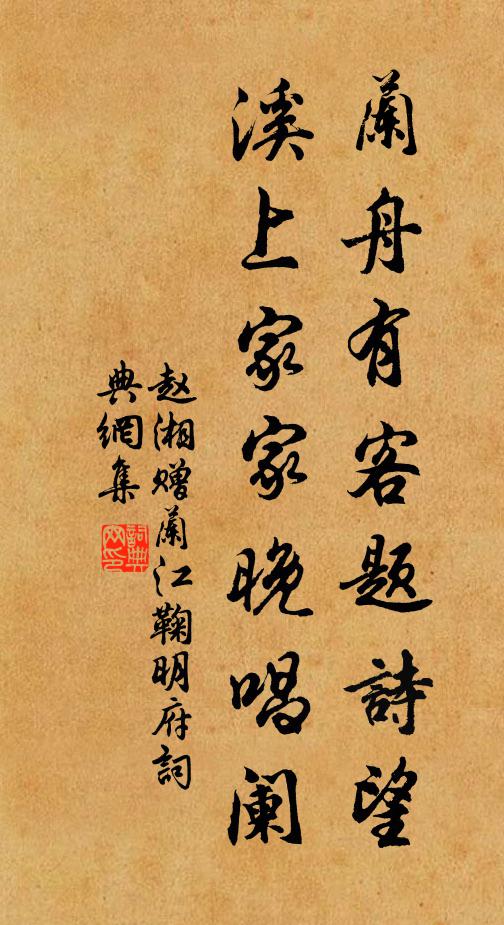 蘭舟有客題詩望
溪上家家晚唱阑
赵湘赠蘭江鞠明府詞
典網集
詞典网印